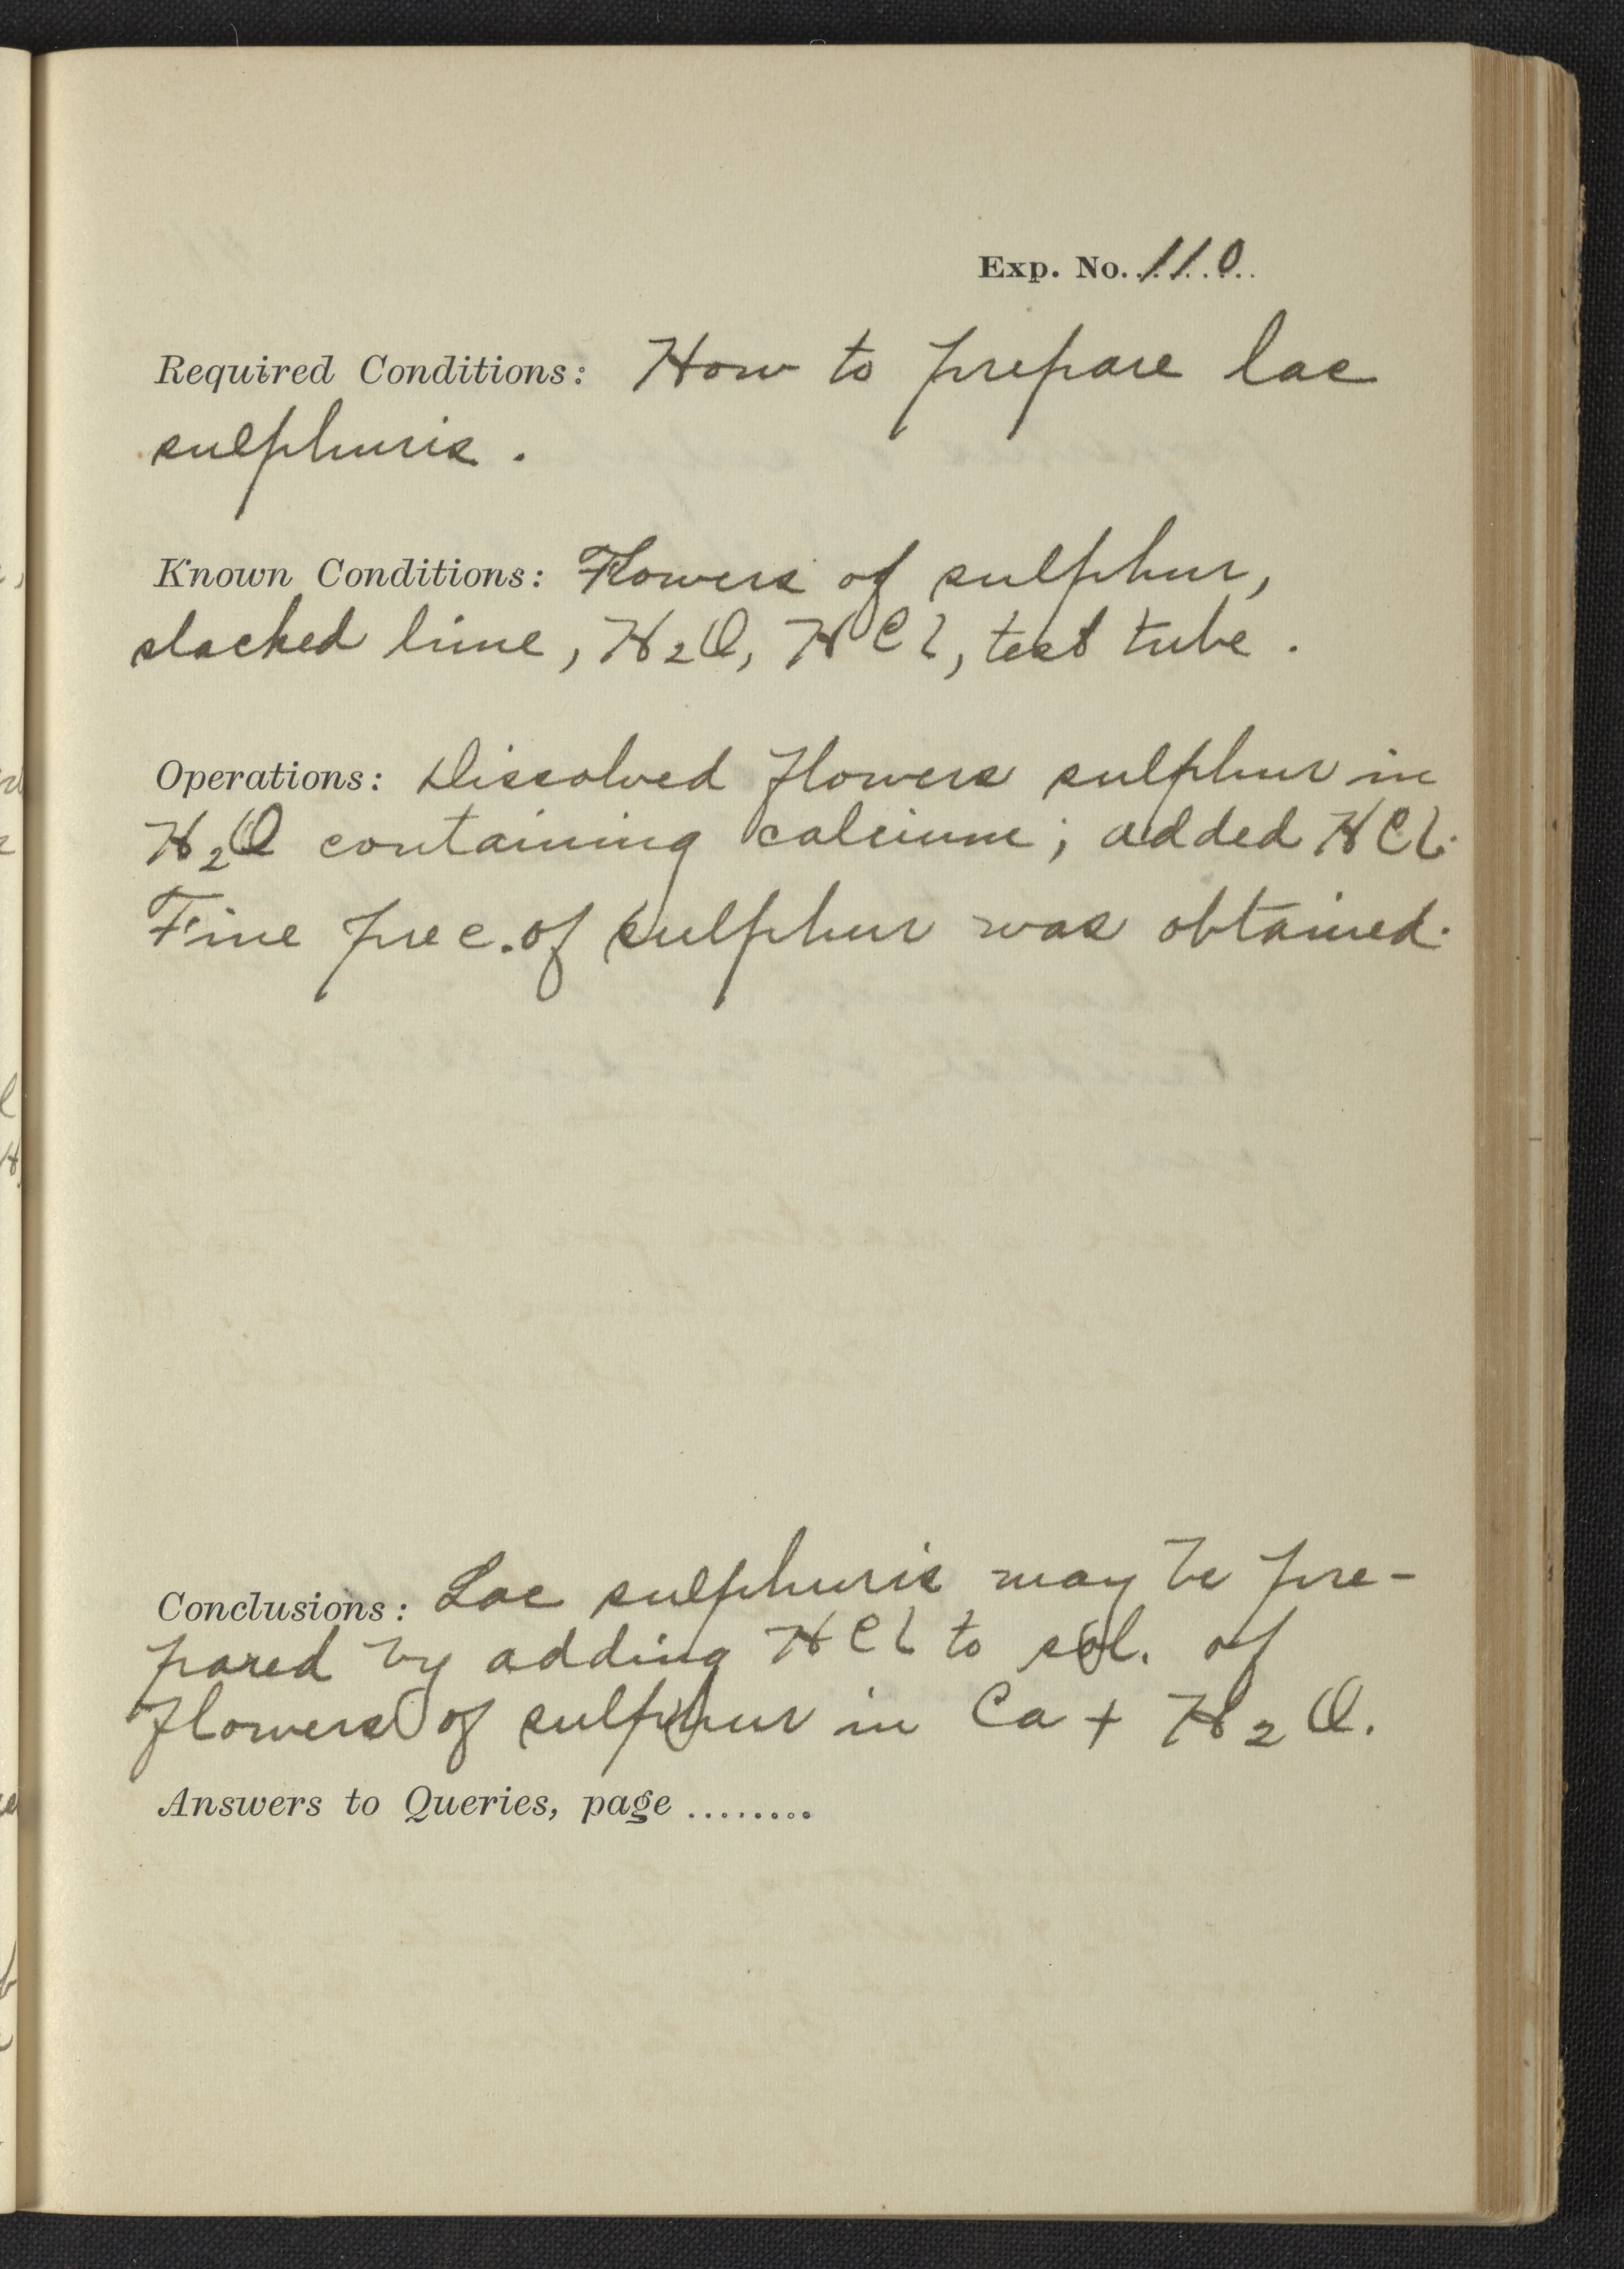 Exp. No. 110
Required Conditions: How to prepare lac
sulphuris.
Known Conditions: Flowers of sulphur,
slacked lime, H2O, HCl, test tube.
Operations: Dissolved flowers sulphur in
H2O containing calcium; added HCl.
Fine prec. of sulphur was obtained.
Conclusions: Lac sulphuris may be pre-
pared by adding HCl to sol. of
flowers of sulphur in Ca + H2O.
Answers to Queries, page ........